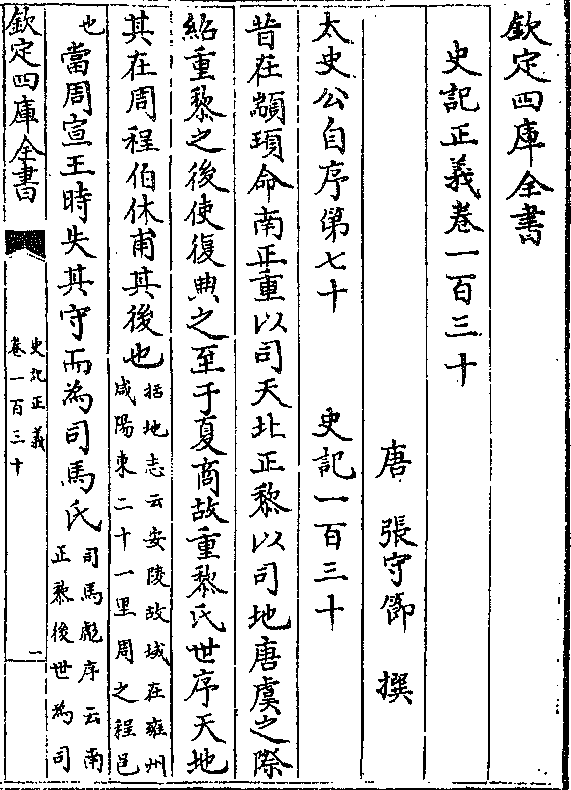 欽定四庫全書
史記正義卷一百三十
唐 張守節 撰
太史公自序第七十 史記一百三十
昔在顓頊命南正重以司天北正黎以司地唐虞之際
紹重黎之後使復典之至于夏商故重黎氏世序天地
其在周程伯休甫其後也
括地志云安陵故城在雍州
咸陽東二十一里周之程邑
也
當周宣王時失其守而為司馬氏
司馬彪序云南
正黎後世為司
欽定四庫全書
史記正義
卷一百三十
一